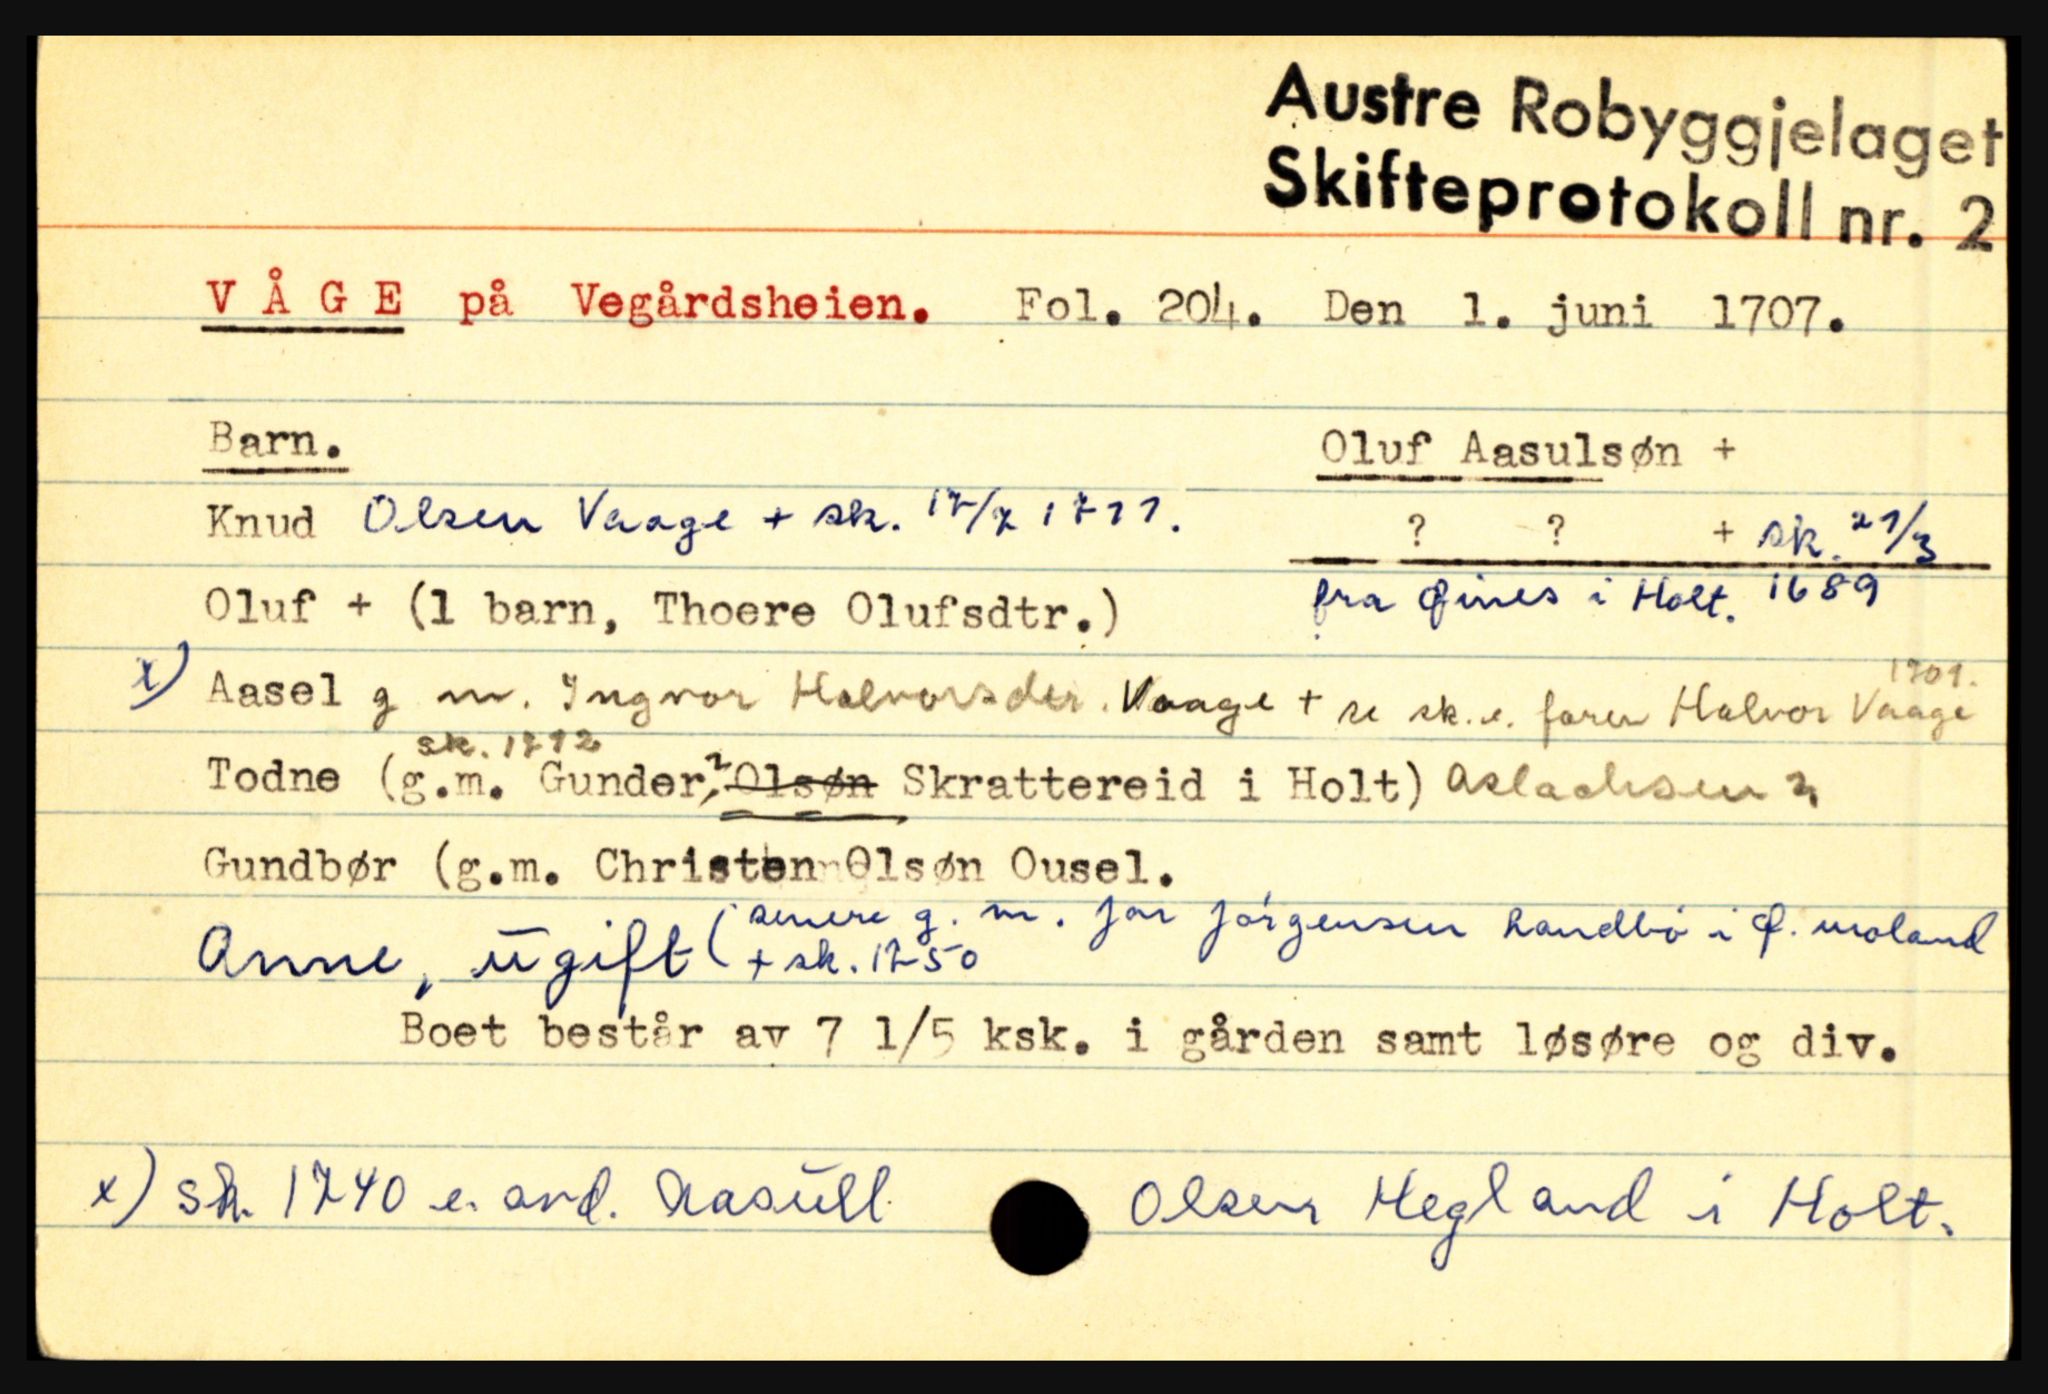 Austre Robyggjelaget
Skifteprotokoll nr. 2
VÅGE på Vegårdsheien. Fol. 204. Den 1. juni 1707.
Barn. Oluf Aasulsøn +
Knud Olsen Vaage + sk. 17/7 1711. ? ? + sk. 21/3
Oluf + (1 barn, Thoere Olufsdtr.) fra Øines i Holt. 1689
x) Aasel g m. Ingvor Halvorsdtr. Vaage + se sk. e. faren Halvor Vaage 1709.
sk. 1712
Todne (g.m. Gunder, ? Olsøn Skrattereid i Holt) Aslachsen ?
Gundbør (g.m. Christen Olsøn Ousel.
Anne, ugift (senere g. m. Jon Jørgensen Landbø i Ø. Moland
+ sk. 1750
Boet består av 7 1/5 ksk. i gården samt løsøre og div.
x) sk. 1740 e. avd. Aasull Olsen Hegland i Holt.